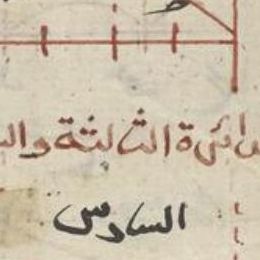 ط
دائرة الثالثة وال
السادس